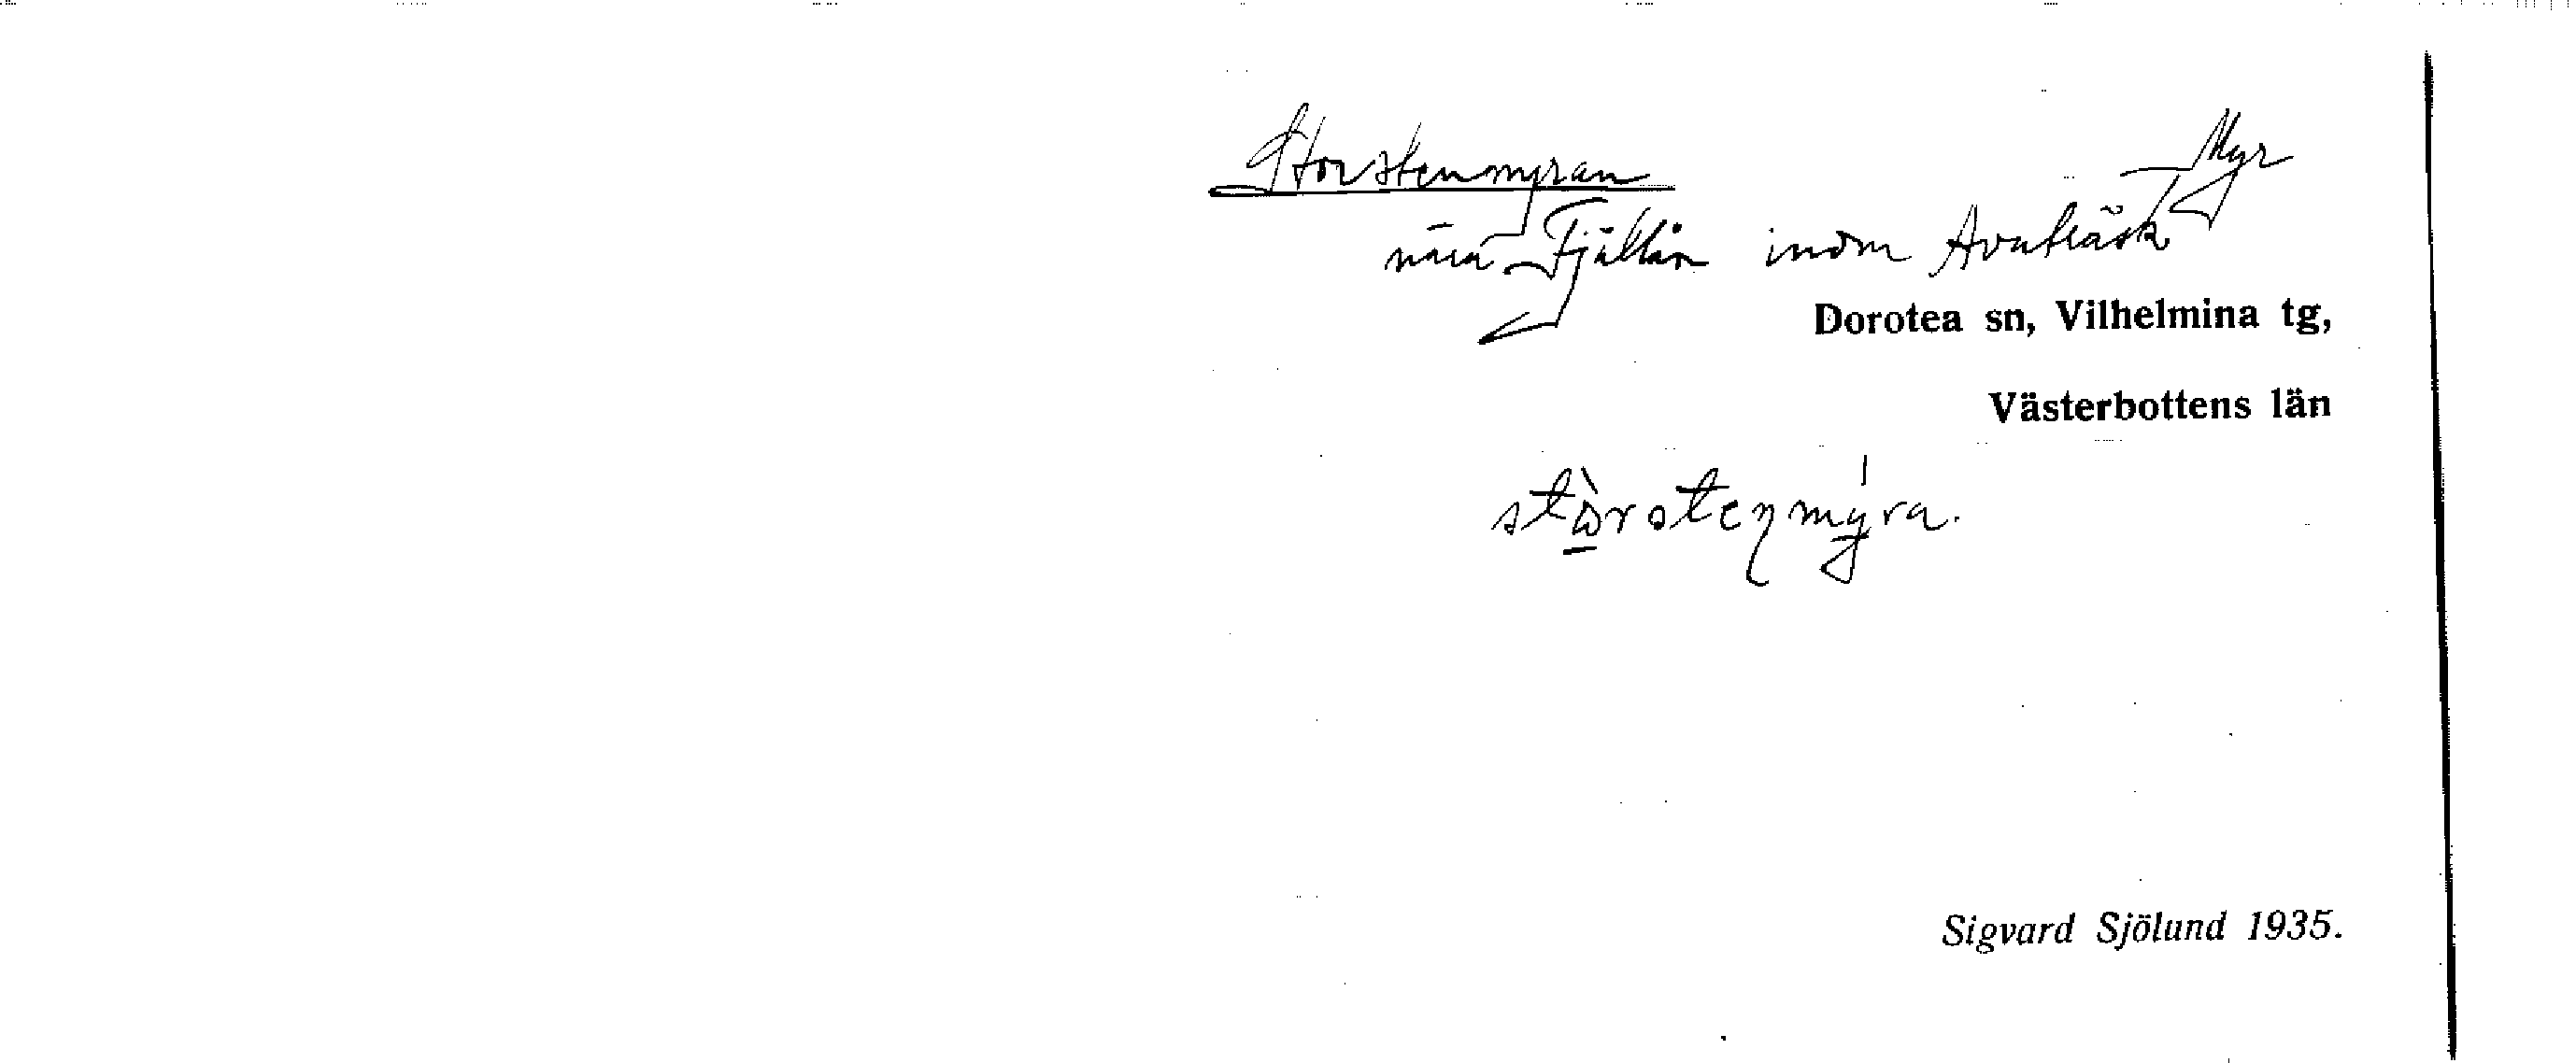 Storstenmyran Myr
nära Fjällån inom Avaträsk
Dorotea sn, Vilhelmina tg,
Västerbottens län
Sigvard Sjölund 1935.